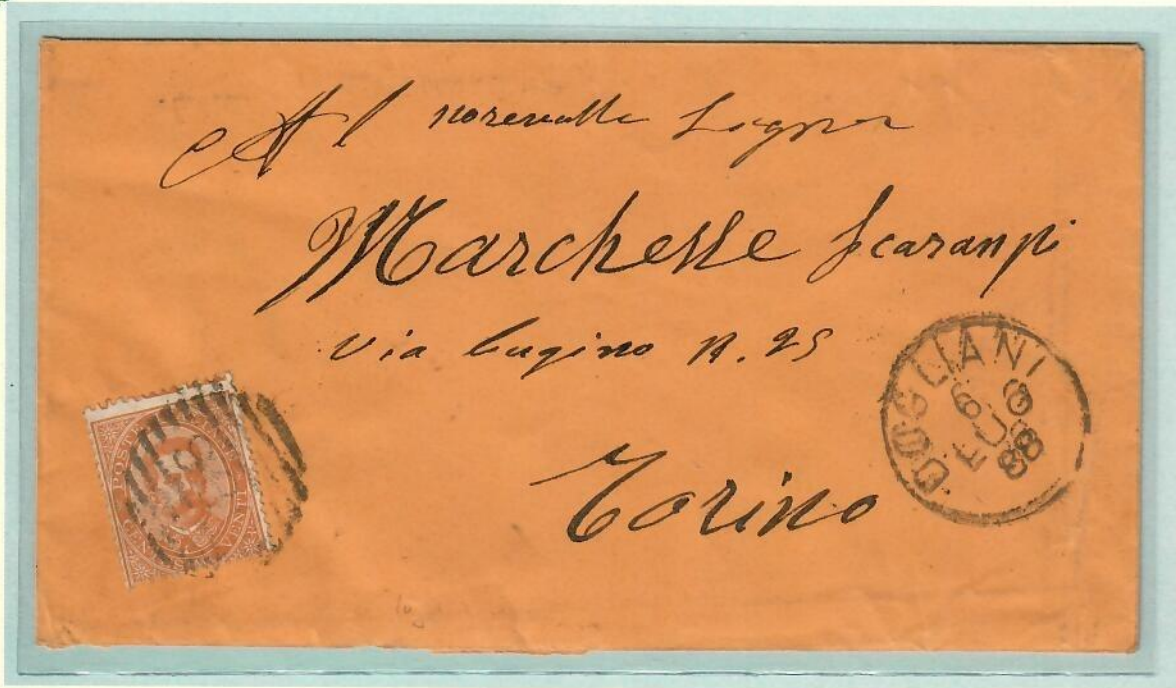 Al norevolle Signor
Marchesse Scarampi
Via Cugino N. 25
Torino
DOGLIANI
6 8
LUG
88
POSTE ITALIANE
CENTESIMI VENTI